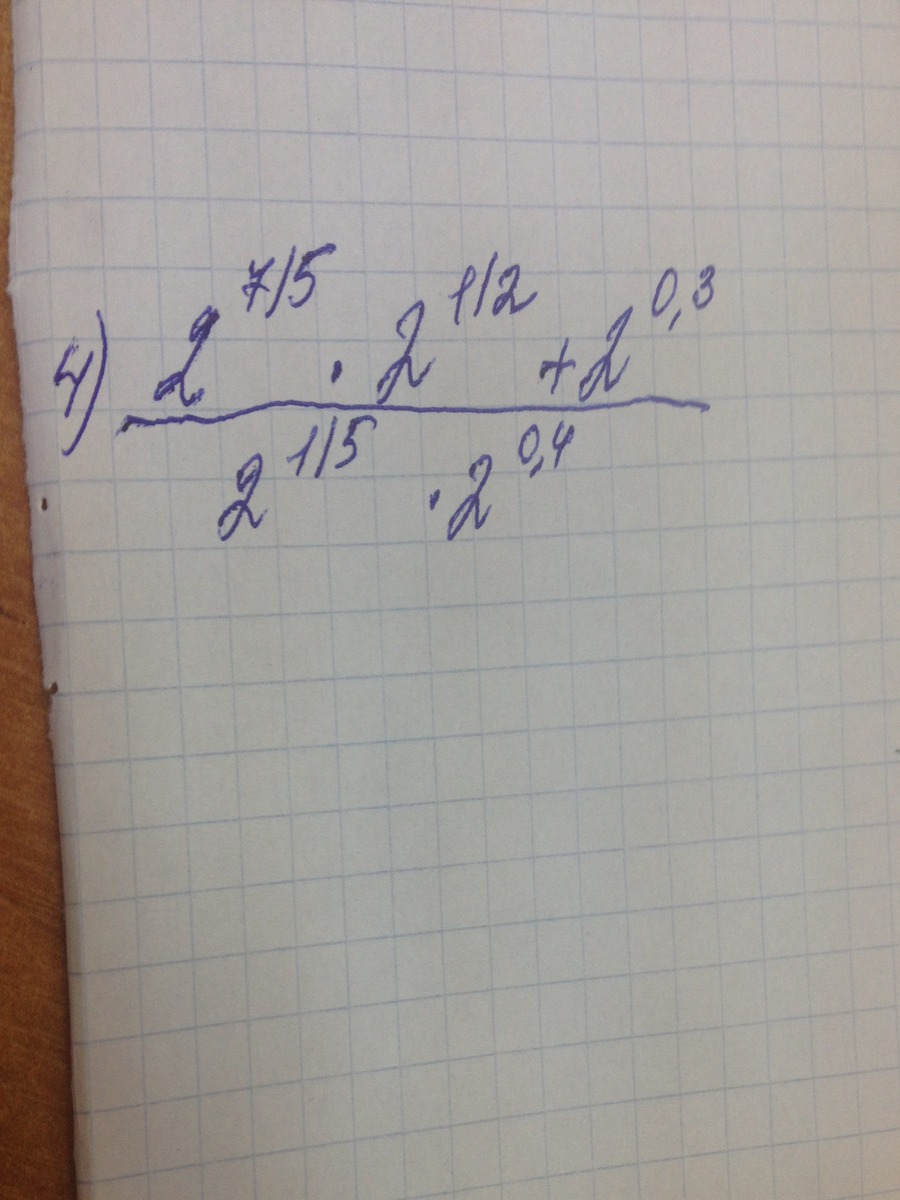 4) 2^{7/5} · 2^{1/2} + 2^{0,3}
2^{1/5} · 2^{0,4}